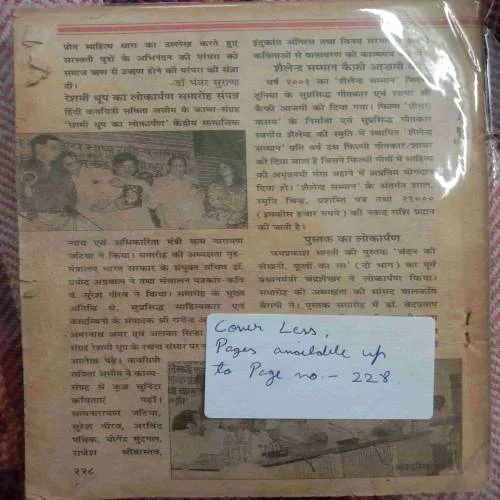 प्रीत साहित्य धारा का उल्लेख करते हुए
सरस्वती पुत्रों के अभिनंदन की परंपरा को
समाज ऋण से उऋण होने की परंपरा की संज्ञा
दी।
-डॉ भंसर सुराणा
रेशमी धूप का लोकार्पण समारोह संपन्न
हिंदी कवयित्री सविता असीम के काव्य-संग्रह
'रेशमी धूप का लोकार्पण' केंद्रीय सामाजिक
न्याय एवं अधिकारिता मंत्री सत्य नारायण
जटिया ने किया। समारोह की अध्यक्षता गृह-
मंत्रालय भारत सरकार के संयुक्त सचिव डॉ.
प्रमोद अग्रवाल ने तथा संचालन पत्रकार-कवि
पं. सुरेश नीरव ने किया। समारोह के मुख्य
अतिथि थे, सुप्रसिद्ध साहित्यकार एवं
कादम्बिनी के संपादक श्री राजेन्द्र
अमरनाथ अमर एवं अलका सिन्हा
संग्रह रेशमी धूप के रचना संसार पर
आलेख पढ़े। कवयित्री
सविता असीम ने काव्य-
संग्रह से कुछ चुनिंदा
कविताएं पढ़ीं।
सत्यनारायण जटिया,
सुरेश नीरव, अरविंद
पथिक, योगेंद्र मुदगल,
राजेश श्रीवास्तव,
२२८
इंदुकांत आंगिरस तथा विनय
कविताओं से वातावरण को काव्यमय
शैलेन्द्र सम्मान कैफ़ी आज़मी
वर्ष २००१ का 'शैलेन्द्र सम्मान'
दुनिया के सुप्रसिद्ध गीतकार एवं शायर श्री
कैफ़ी आजमी को दिया गया। फिल्म 'तीसरी
कसम' के निर्माता एवं सुप्रसिद्ध गीतकार
स्वर्गीय शैलेन्द्र की स्मृति में स्थापित 'शैलेन्द्र
सम्मान' प्रति वर्ष उस फिल्मी गीतकार/शायर
को दिया जाता है जिसने फिल्मी गीतों में साहित्य
की अमृतमयी गंगा बहाने में अप्रतिम योगदान
दिया हो। 'शैलेन्द्र सम्मान' के अंतर्गत शाल,
स्मृति चिन्ह, प्रशस्ति पत्र तथा २१०००
(इक्कीस हजार रुपये) की नकद राशि प्रदान
की जाती है।
पुस्तक का लोकार्पण
जयप्रकाश भारती की पुस्तक 'चंदन की
लेखनी, फूलों का रस' (दो भाग) का पूर्व
प्रधानमंत्री चंद्रशेखर ने लोकार्पण किया।
समारोह की अध्यक्षता की सांसद बालकवि
बैरागी ने। पुस्तक समारोह में डॉ. वेदप्रताप
Cover Less,
Pages available up
to Page no. - 228